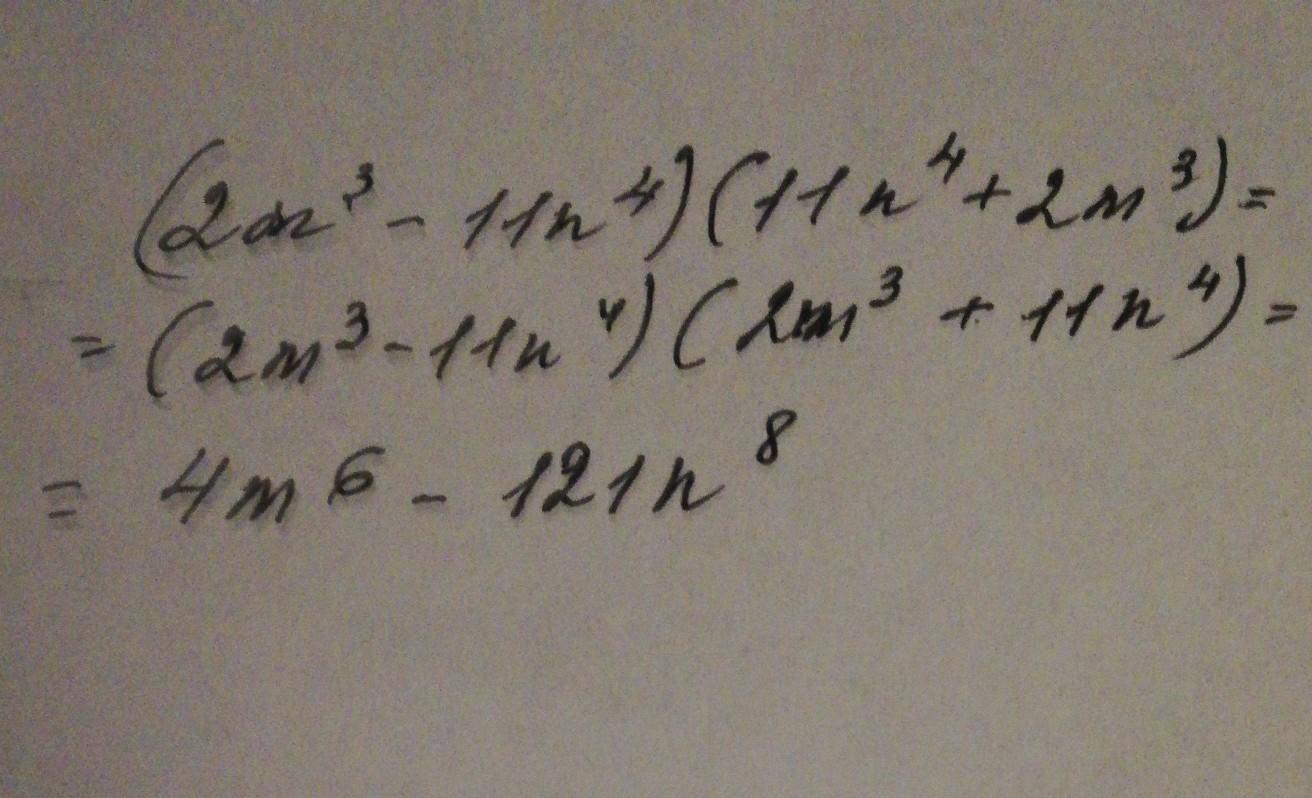 (2m³ - 11n⁴)(11n⁴ + 2m³) =
= (2m³ - 11n⁴)(2m³ + 11n⁴) =
= 4m⁶ - 121n⁸